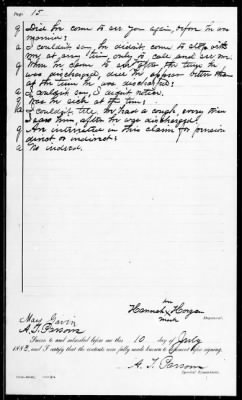 Page 15
Q Did he come to see you again, before he was
married?
A I couldn't say, he didn't come to stop with
me at any time, only to call and see me.
Q When he came to see after the time he
was discharged, did he appear better than
at the time he was discharged?
A I couldn't say, I didn't notice.
Q Was he sick at the time?
A I couldn't tell, he had a cough, every time
I saw him, after he was discharged.
Q Any interest in this claim for pension
direct or indirect?
A No indeed.
her
Hannah x Hogan
mark
Deponent.
Mary Gavin
A. T. Parsons
Sworn to and subscribed before me this 10 day of July
188 , and I certify that the contents were fully made known to deponent before signing.
A. T. Parsons
Special Examiner.